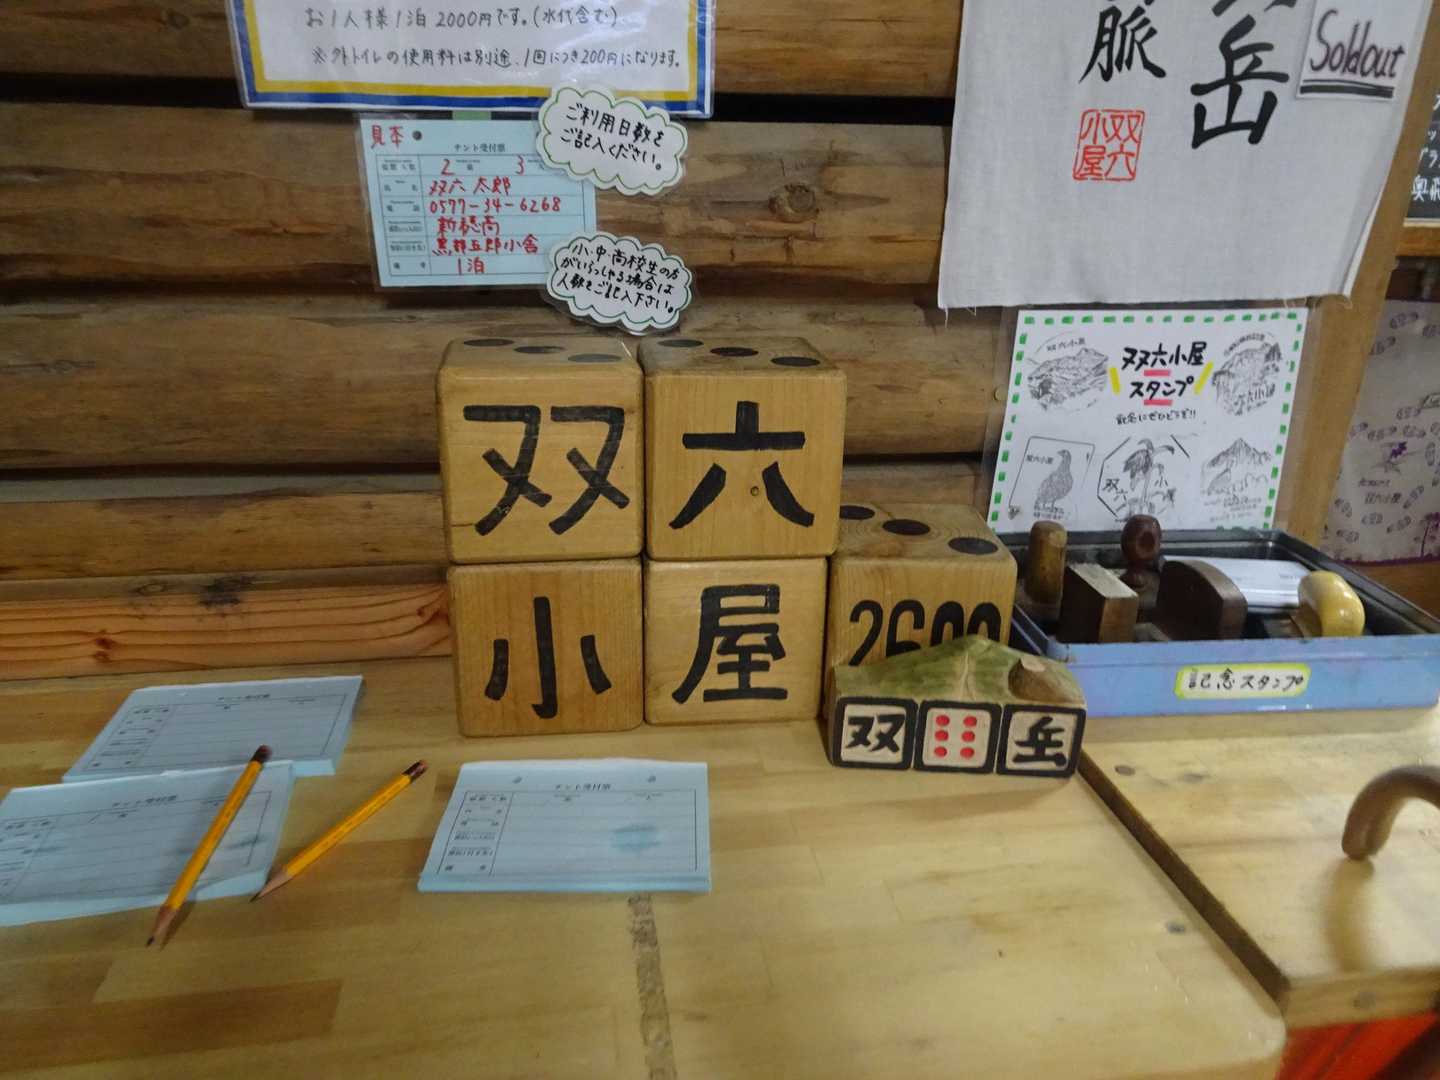 お1人様1泊2000円です。(水代含む)
※外トイレの使用料は別途、1回につき200円になります。
見本
テント受付票
2 3
双六 太郎
0577-34-6268
新穂高
黒部五郎小舎
1泊
ご利用日数を
ご記入ください。
小・中・高校生の方
がいらっしゃる場合は
人数をご記入下さい。
脈
岳
双六
小屋
Soldout
双六小屋
スタンプ
記念にぜひどうぞ!!
双六小屋
双六小屋
双六小屋
双六
小屋
2600
双
岳
記念スタンプ
テント受付票
テント受付票
テント受付票